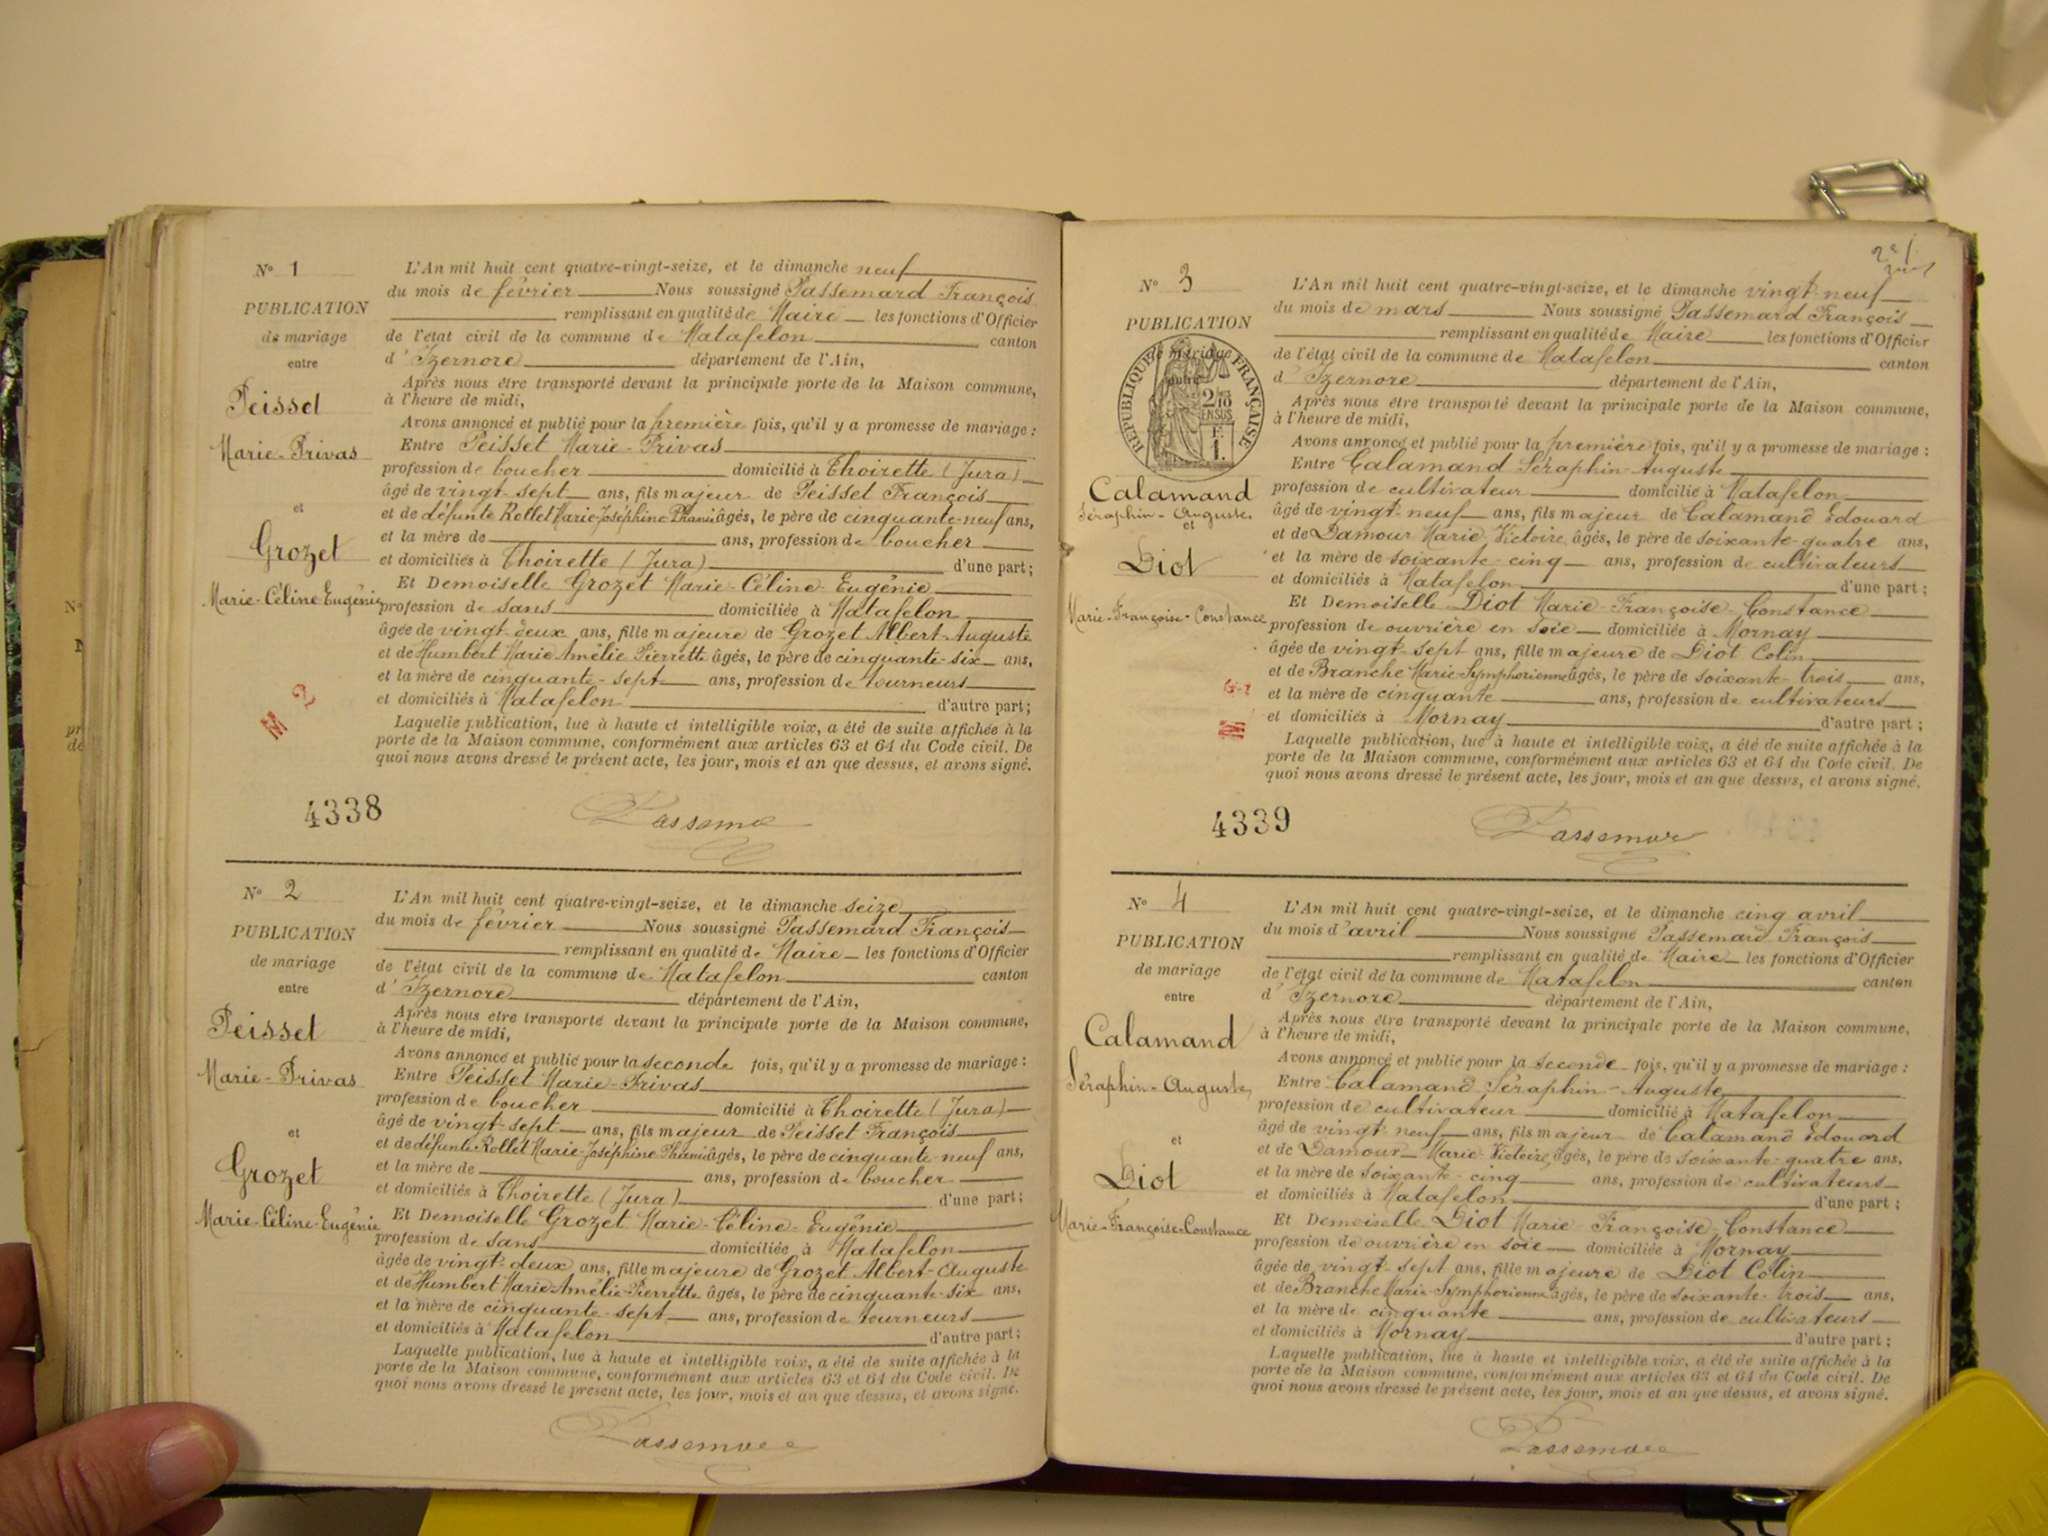 Nº 1
PUBLICATION
de mariage
entre
Peisset
Marie-Privas
et
Grozet
Marie-Céline Eugénie
L'An mil huit cent quatre-vingt-seize, et le dimanche neuf
du mois de février Nous soussigné Passemard François
remplissant en qualité de Maire les fonctions d'Officier
de l'état civil de la commune de Matafelon canton
d'Izernore département de l'Ain,
Après nous être transporté devant la principale porte de la Maison commune,
à l'heure de midi,
Avons annoncé et publié pour la première fois, qu'il y a promesse de mariage :
Entre Peisset Marie-Privas
profession de boucher domicilié à Thoirette (Jura)
âgé de vingt-sept ans, fils majeur de Peisset François
et de défunte Rollet Marie-Joséphine âgés, le père de cinquante-neuf ans,
et la mère de ans, profession de boucher
et domiciliés à Thoirette (Jura) d'une part ;
Et Demoiselle Grozet Marie-Céline-Eugénie
profession de sans domiciliée à Matafelon
âgée de vingt-deux ans, fille majeure de Grozet Albert-Auguste
et de Humbert Marie Amélie Pierrette âgés, le père de cinquante-six ans,
et la mère de cinquante-sept ans, profession de tourneurs
et domiciliés à Matafelon d'autre part ;
Laquelle publication, lue à haute et intelligible voix, a été de suite affichée à la
porte de la Maison commune, conformément aux articles 63 et 64 du Code civil. De
quoi nous avons dressé le présent acte, les jour, mois et an que dessus, et avons signé.
M 2
4338
Nº 2
PUBLICATION
de mariage
entre
Peisset
Marie-Privas
et
Grozet
Marie-Céline-Eugénie
L'An mil huit cent quatre-vingt-seize, et le dimanche seize
du mois de février Nous soussigné Passemard François
remplissant en qualité de Maire les fonctions d'Officier
de l'état civil de la commune de Matafelon canton
d'Izernore département de l'Ain,
Après nous être transporté devant la principale porte de la Maison commune,
à l'heure de midi,
Avons annoncé et publié pour la seconde fois, qu'il y a promesse de mariage :
Entre Peisset Marie-Privas
profession de boucher domicilié à Thoirette (Jura)
âgé de vingt-sept ans, fils majeur de Peisset François
et de défunte Rollet Marie-Joséphine âgés, le père de cinquante-neuf ans,
et la mère de ans, profession de boucher
et domiciliés à Thoirette (Jura) d'une part ;
Et Demoiselle Grozet Marie-Céline-Eugénie
profession de sans domiciliée à Matafelon
âgée de vingt-deux ans, fille majeure de Grozet Albert-Auguste
et de Humbert Marie-Amélie-Pierrette âgés, le père de cinquante-six ans,
et la mère de cinquante-sept ans, profession de tourneurs
et domiciliés à Matafelon d'autre part ;
Laquelle publication, lue à haute et intelligible voix, a été de suite affichée à la
porte de la Maison commune, conformément aux articles 63 et 64 du Code civil. De
quoi nous avons dressé le présent acte, les jour, mois et an que dessus, et avons signé.
Nº 3
PUBLICATION
de mariage
entre
RÉPUBLIQUE FRANÇAISE
2/10 EN SUS
1F.
Calamand
Séraphin-Auguste
et
Diot
Marie-Françoise-Constance
L'An mil huit cent quatre-vingt-seize, et le dimanche vingt-neuf
du mois de mars Nous soussigné Passemard François
remplissant en qualité de Maire les fonctions d'Officier
de l'état civil de la commune de Matafelon canton
d'Izernore département de l'Ain,
Après nous être transporté devant la principale porte de la Maison commune,
à l'heure de midi,
Avons annoncé et publié pour la première fois, qu'il y a promesse de mariage :
Entre Calamand Séraphin-Auguste
profession de cultivateur domicilié à Matafelon
âgé de vingt-neuf ans, fils majeur de Calamand Edouard
et de Damour Marie Victoire, âgés, le père de soixante-quatre ans,
et la mère de soixante-cinq ans, profession de cultivateurs
et domiciliés à Matafelon d'une part ;
Et Demoiselle Diot Marie-Françoise-Constance
profession de ouvrière en soie domiciliée à Mornay
âgée de vingt-sept ans, fille majeure de Diot Colin
et de Branche Marie-Symphorienne âgés, le père de soixante-trois ans,
et la mère de cinquante ans, profession de cultivateurs
et domiciliés à Mornay d'autre part ;
Laquelle publication, lue à haute et intelligible voix, a été de suite affichée à la
porte de la Maison commune, conformément aux articles 63 et 64 du Code civil. De
quoi nous avons dressé le présent acte, les jour, mois et an que dessus, et avons signé.
4339
Nº 4
PUBLICATION
de mariage
entre
Calamand
Séraphin-Auguste
et
Diot
Marie-Françoise-Constance
L'An mil huit cent quatre-vingt-seize, et le dimanche cinq avril
du mois d'avril Nous soussigné Passemard François
remplissant en qualité de Maire les fonctions d'Officier
de l'état civil de la commune de Matafelon canton
d'Izernore département de l'Ain,
Après nous être transporté devant la principale porte de la Maison commune,
à l'heure de midi,
Avons annoncé et publié pour la seconde fois, qu'il y a promesse de mariage :
Entre Calamand Séraphin-Auguste
profession de cultivateur domicilié à Matafelon
âgé de vingt-neuf ans, fils majeur de Calamand Edouard
et de Damour Marie-Victoire, âgés, le père de soixante-quatre ans,
et la mère de soixante-cinq ans, profession de cultivateurs
et domiciliés à Matafelon d'une part ;
Et Demoiselle Diot Marie-Françoise-Constance
profession de ouvrière en soie domiciliée à Mornay
âgée de vingt-sept ans, fille majeure de Diot Colin
et de Branche Marie-Symphorienne âgés, le père de soixante-trois ans,
et la mère de cinquante ans, profession de cultivateurs
et domiciliés à Mornay d'autre part ;
Laquelle publication, lue à haute et intelligible voix, a été de suite affichée à la
porte de la Maison commune, conformément aux articles 63 et 64 du Code civil. De
quoi nous avons dressé le présent acte, les jour, mois et an que dessus, et avons signé.